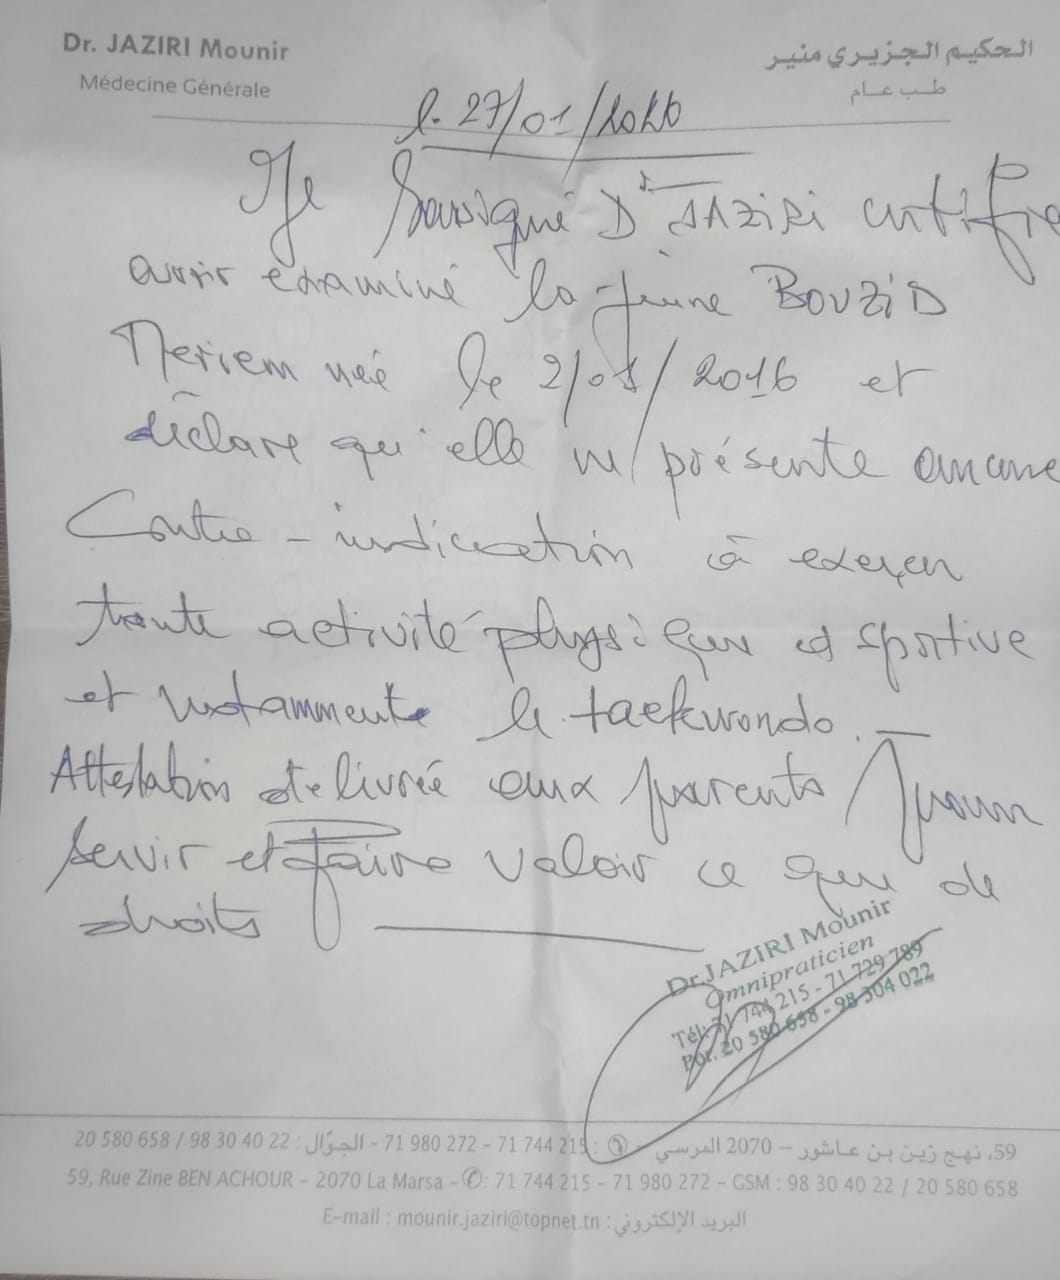 Dr. JAZIRI Mounir
الحكيم الجزيري منير
Médecine Générale
طب عام
le 27/01/2026
Je soussigné Dr JAZIRI certifie
avoir examiné la jeune BOUZID
Meriem née le 2/01/2016 et
déclare qu'elle ne présente aucune
Contre-indication à exercer
toute activité physique et sportive
et notamment le taekwondo.
Attestation délivrée aux parents pour
servir et faire valoir ce que de
droits
Dr. JAZIRI Mounir
Omnipraticien
Tél: 71 744 215 - 71 729 789
Por. 20 580 658 - 98 304 022
59، نهج زين بن عاشور – 2070 المرسى – ✆ : 71 744 215 – 71 980 272 – الجوّال : 22 40 30 98 / 658 580 20
59, Rue Zine BEN ACHOUR – 2070 La Marsa – ✆: 71 744 215 – 71 980 272 – GSM : 98 30 40 22 / 20 580 658
E-mail : mounir.jaziri@topnet.tn : البريد الإلكتروني